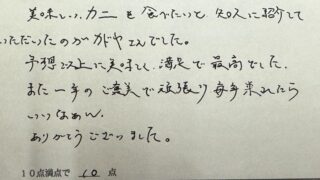 美味しいカニを食べたいと、知人に紹介して
いただいたのがカドヤさんでした。
予想以上に美味しく、満足で最高でした。
また一年のご褒美で頑張り毎年来れたら
いいなぁ。
ありがとうございました。
10点満点で 10 点